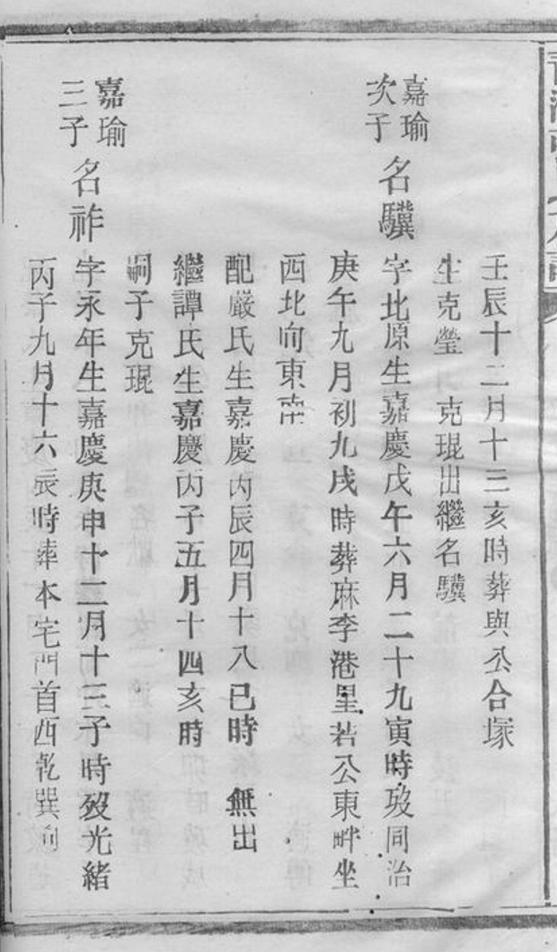 壬辰十二月十三亥時葬與公合塚
生克瑩 克琨出繼名驥
嘉瑜
次子
名驥 字北原生嘉慶戊午六月二十九寅時歿同治
庚午九月初九戌時葬麻李港星若公東畔坐
西北向東南
配嚴氏生嘉慶丙辰四月十八巳時 無出
繼譚氏生嘉慶丙子五月十四亥時
嗣子克琨
嘉瑜
三子
名祚 字永年生嘉慶庚申十二月十三子時歿光緒
丙子九月十六辰時葬本宅門首西乾巽向